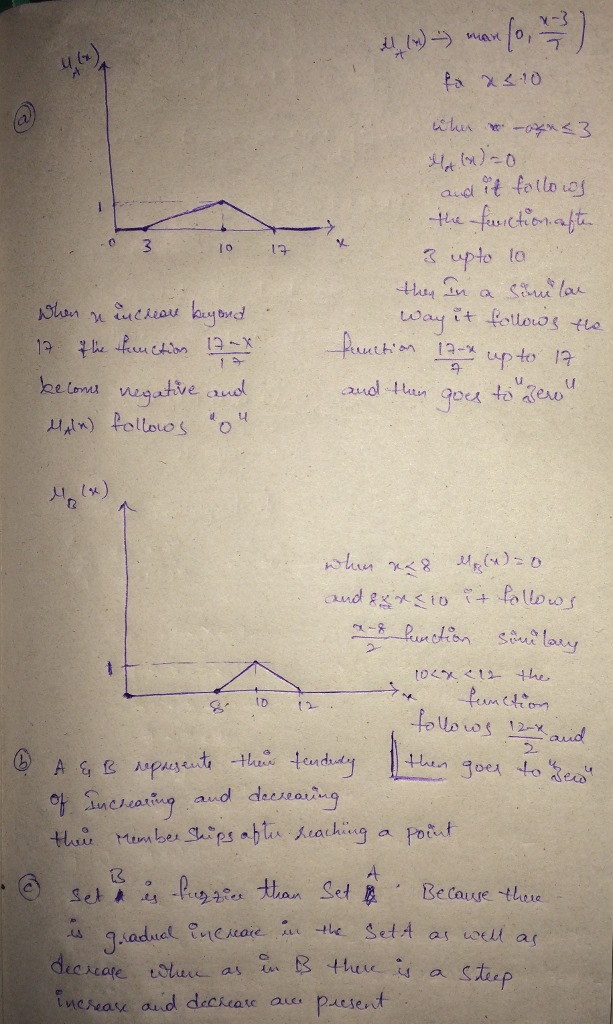 μA(x) => max [0, x-3/7)
for x ≤ 10
μA(x)
(a)
when -∝<x≤3
μA(x)=0
and it follows
the function after
1
0 3 10 17 x
3 upto 10
then In a Similar
way it follows the
function 17-x/7 upto 17
and then goes to "Zero"
When x increase beyond
17 the function 17-x/17
become negative and
μA(x) follows "0"
μB(x)
when x≤8 μB(x)=0
and 8≤x≤10 it follows
x-8/2 function similary
10<x<12 the
function
follows 12-x/2 and
then goes to "Zero"
1
8 10 12 x
(b) A & B represents their tendency
of Increasing and decreasing
their memberships after reaching a point
(c) Set B is fuzzier than Set A. Because there
is gradual increase in the Set A as well as
decrease when as in B there is a steep
increase and decrease are present